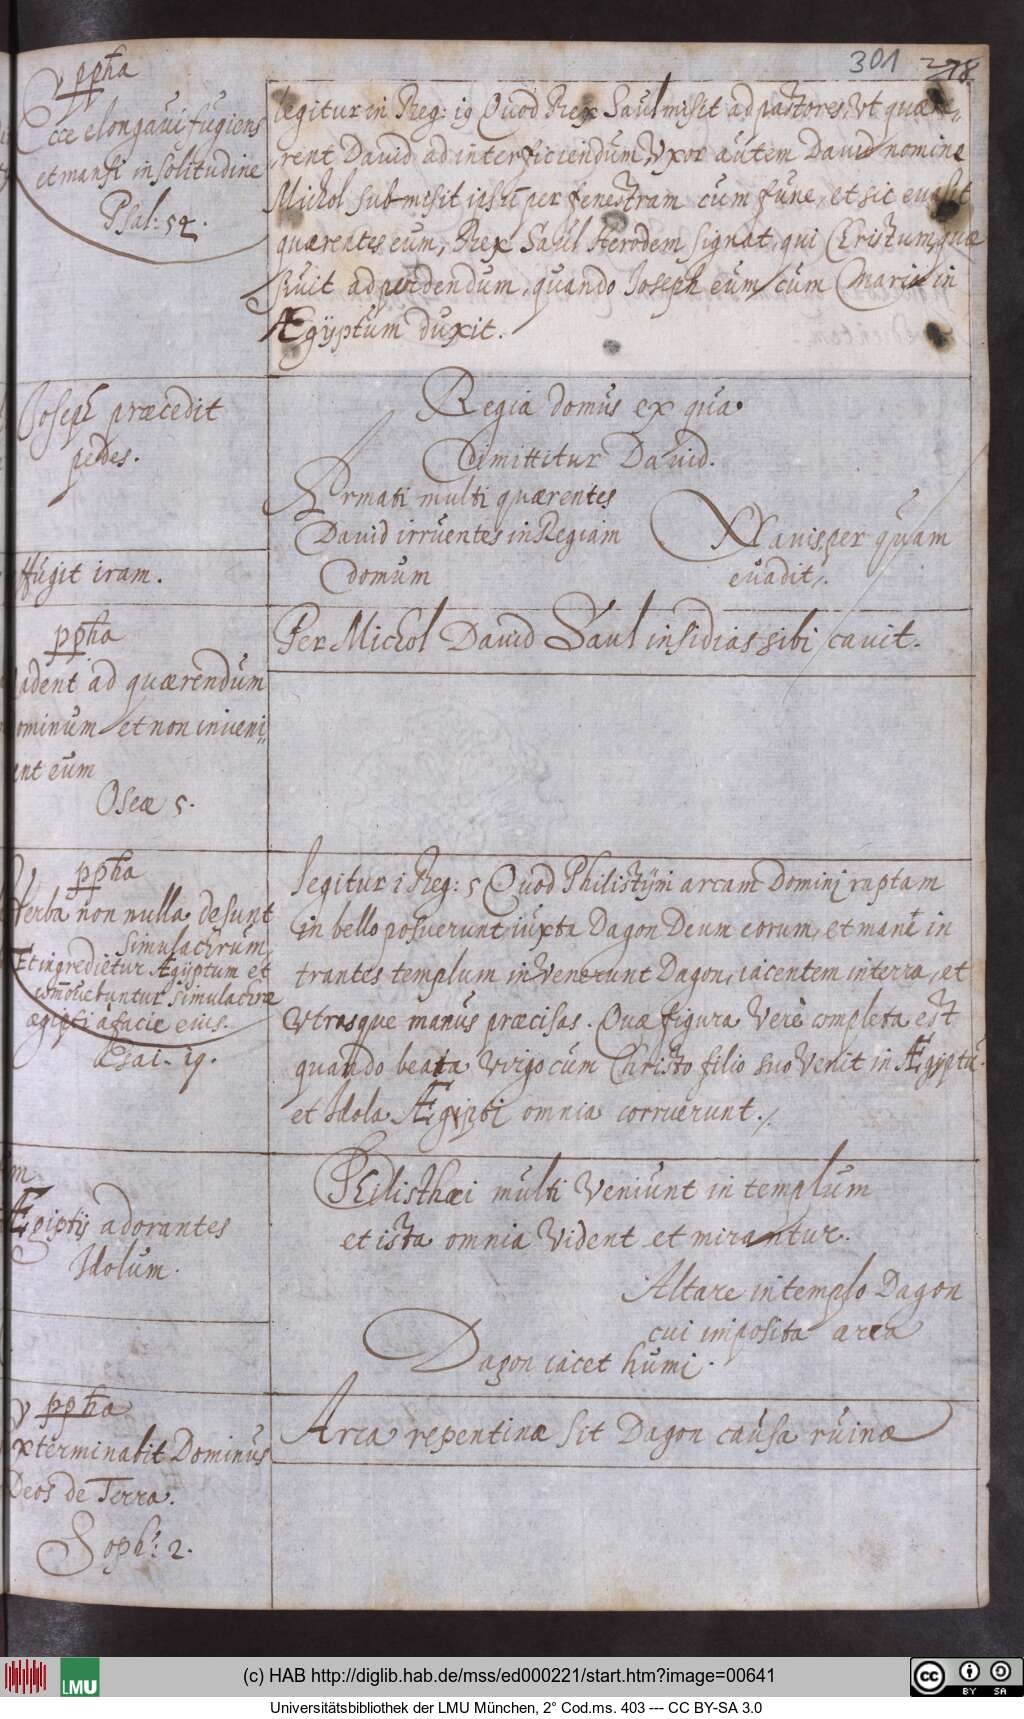 301 278.
ppħa
Ecce elongavi fugiens
et mansi in solitudine
Psal: 54.
Legitur in Reg: 19 Quod Rex Saul misit ad pastores, Vt quæ=
rent David ad interficiendum, Vxor autem David nomine
Michol submisit ipsū per fenestram cum fune, et sic evasit
quærentes eum, Rex Saul Herodem signat, qui Christum quæ
sivit ad perdendum, quando Joseph eum cum Maria in
Ægÿptum duxit.
Joseph præcedit
pedes.
Regia domus ex qua
dimittitur David.
Armati multi quærentes
David irruentes in Regiam
domum
Navis, per quam
evadit.
ffugit iram.
ppħa
adent ad quærendum
ominum et non inveni=
ent eum
Oseæ 5.
Per Michol David Saul insidias sibi cavit.
ppħa
Verba non nulla desunt
simulachrum
Et ingredietur Ægyptum et
comōvebuntur simulachra
ægipti à facie eius.
Esai. 19.
Legitur i Reg: 5 Quod Philistÿni arcam Dominj raptam
in bello posuerunt iuxta Dagon Deum eorum, et manè in
trantes templum invenerunt Dagon, iacentem in terra, et
Vtrasque manus præcisas. Quæ figura Verè completa est
quando beata Virgo cum Christo filio suo Venit in Ægyptū
et Idola Ægipti omnia corruerunt.
m
Ægiptij adorantes
Idolum.
Philisthæi multi Veniunt in templum
et ista omnia Vident et mirantur.
Altare in templo Dagon
cui imposita arca
Dagon iacet humi.
ppħa
xterminabit Dominus
Deos de Terra.
Soph: 2.
Arca repentinæ sit Dagon causa ruinæ
(c) HAB http://diglib.hab.de/mss/ed000221/start.htm?image=00641
LMU
cc BY SA
Universitätsbibliothek der LMU München, 2° Cod.ms. 403 --- CC BY-SA 3.0